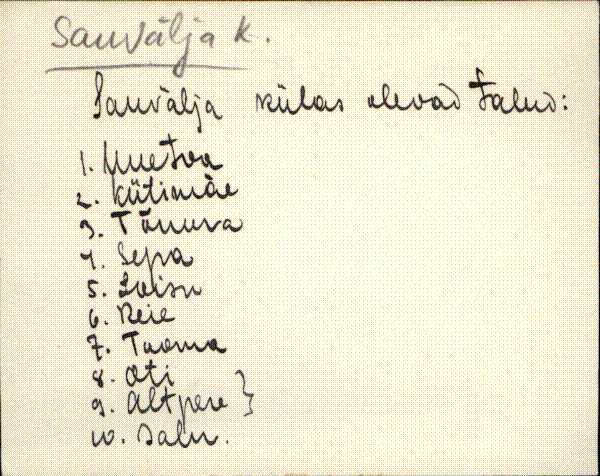 Sauvälja k.
Sauvälja külas olevad talud:
1. Muetsa
2. Kütimäe
3. Tõnuva
4. Sepa
5. Loisu
6. Reie
7. Tooma
8. Oti
9. Altpere }
10. Salu.